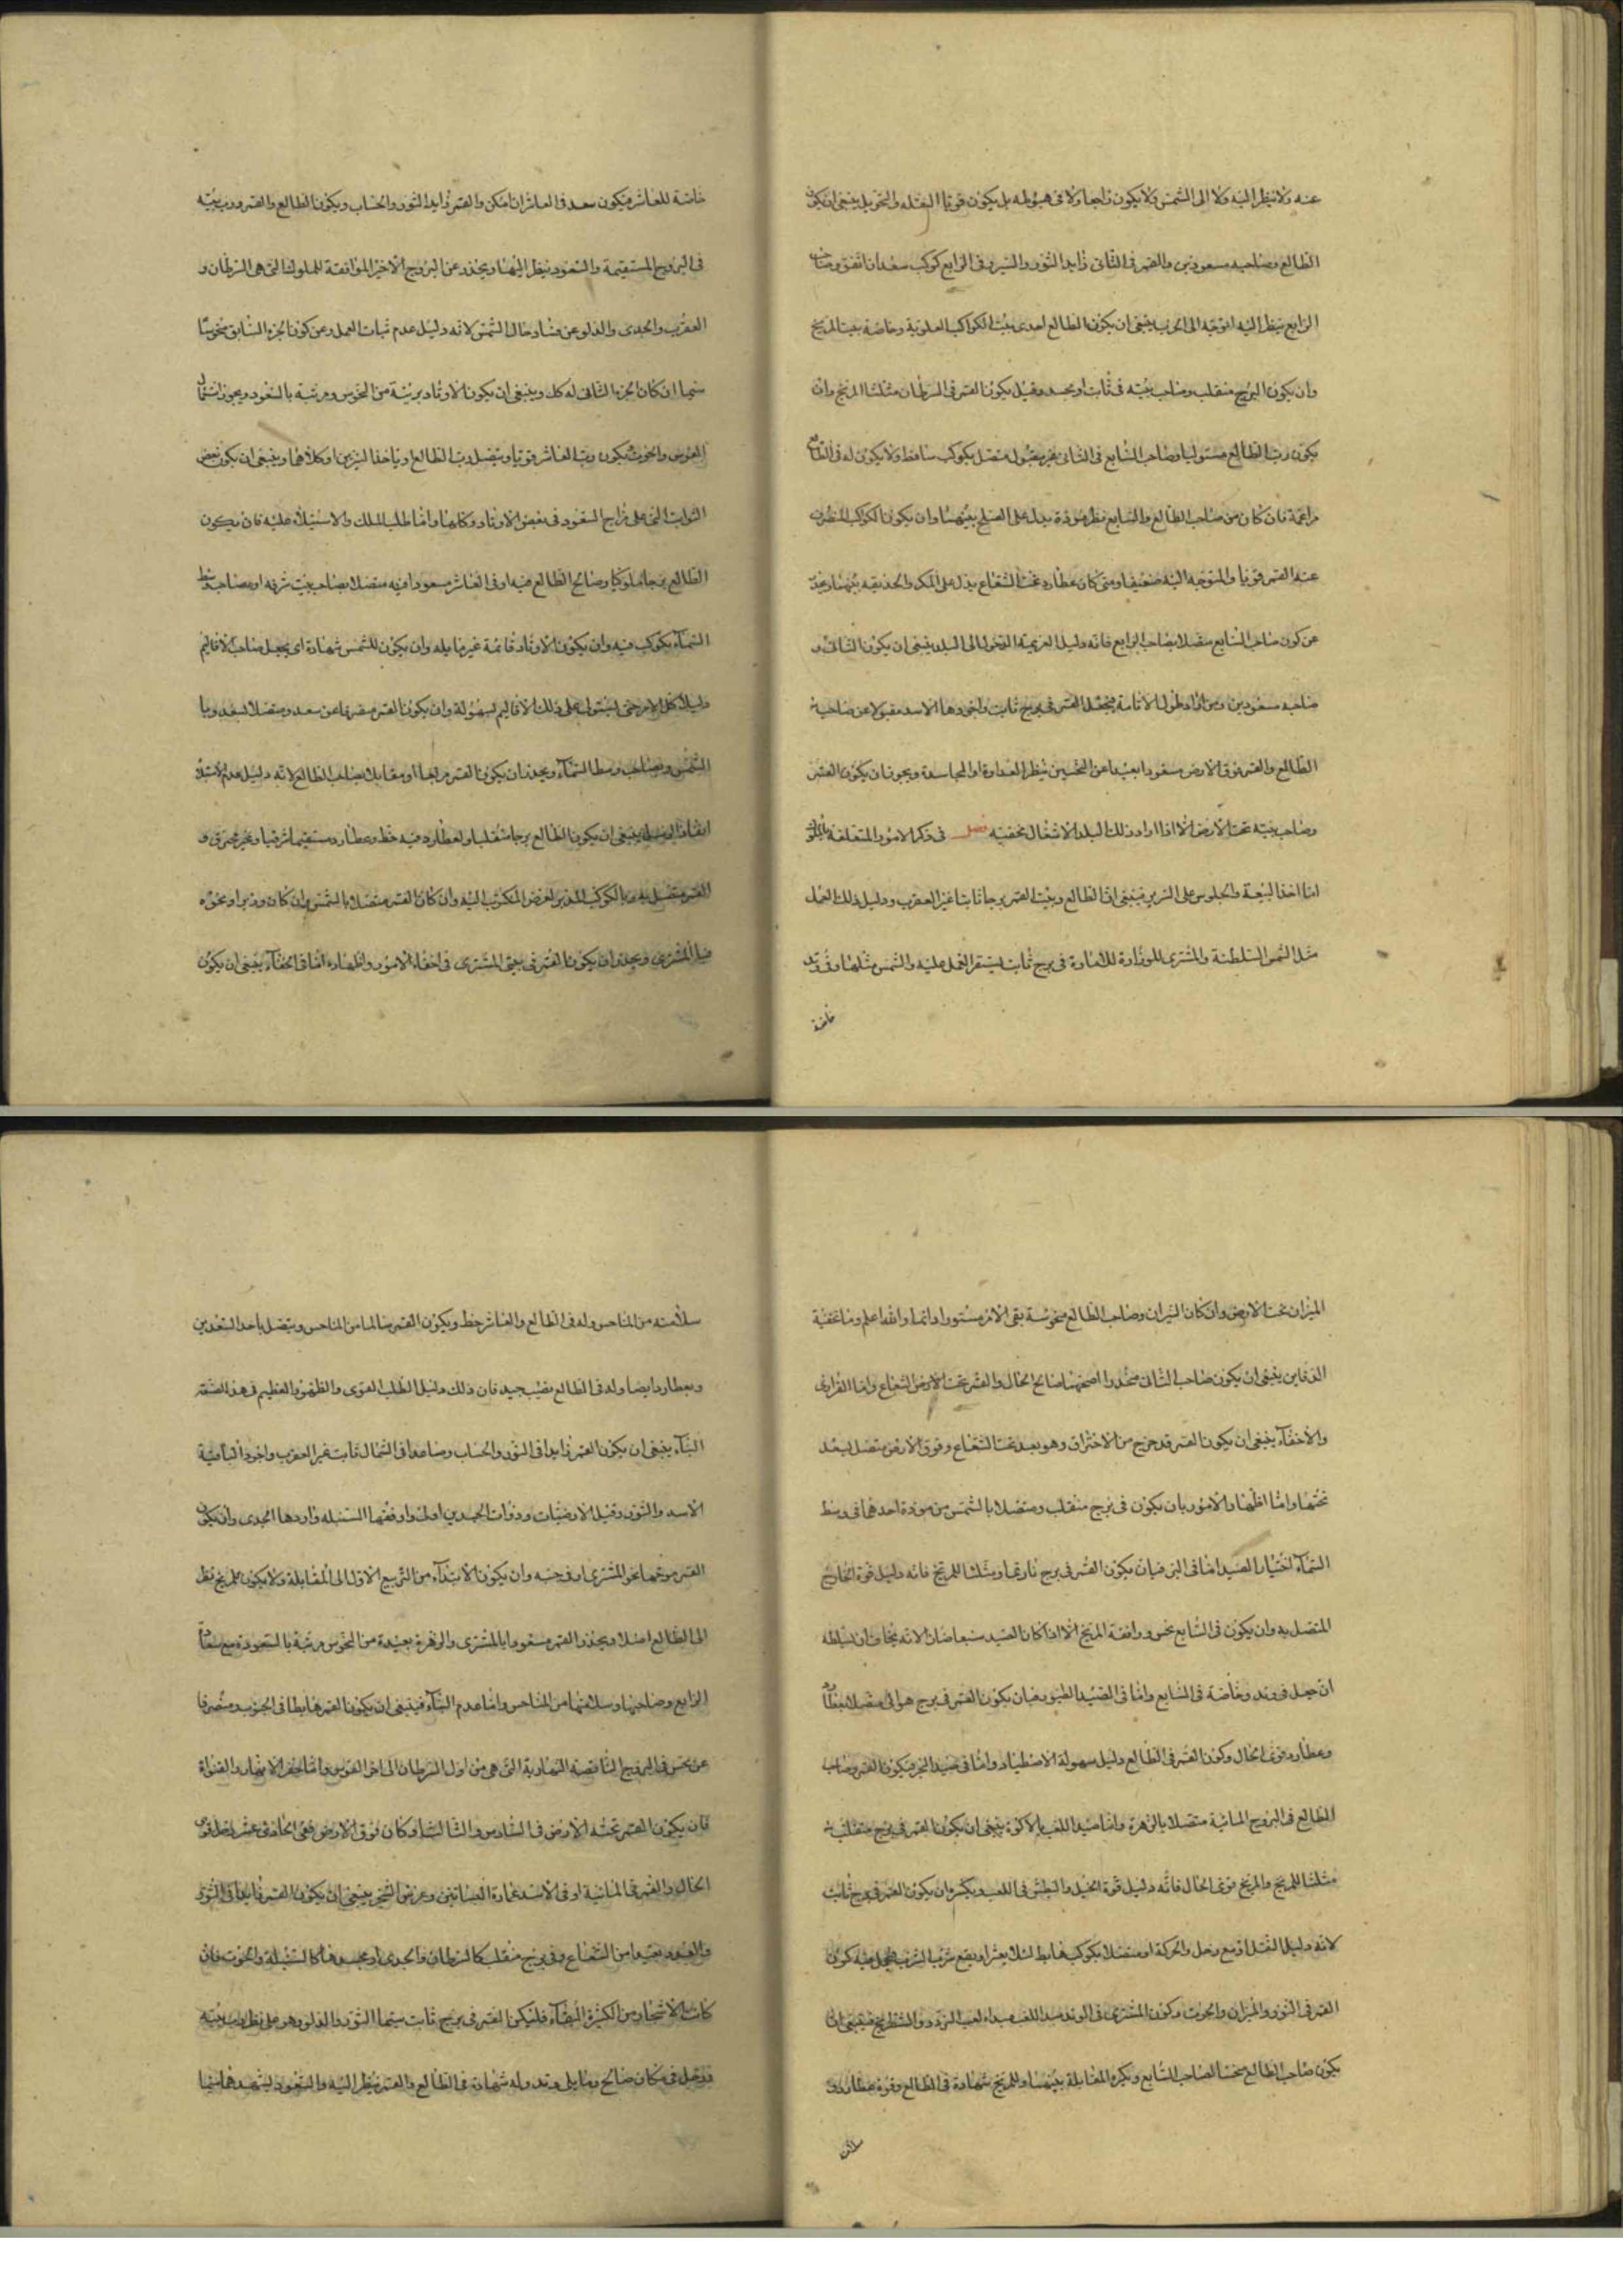 عنه ولا ينظر اليه ولا الى الشمس ولا يكون راجعا ولا فى هبوطه بل يكون قويا النقلة والتحويل ينبغى ان يكون
الطالع وصاحبه مسعودين والقمر فى الثانى زايد النور والسير وفى الرابع كوكب سعد ان اتفق وصاحب
الرابع ينظر اليه التوجه الى الحرب ينبغى ان يكون الطالع احدى بيوت الكواكب العلوية وخاصة بيت المريخ
وان يكون البرج منقلب وصاحب بيته فى ثابت او مجسد وقيل يكون القمر فى السرطان مثلثا المريخ وان
يكون رب الطالع مستوليا وصاحب السابع فى الثانى غير مقبول متصل بكوكب ساقط ولا يكون له فى الطالع
مزاعمة فان كان من صاحب الطالع والسابع نظر مودة يدل على الصلح بينهما وان يكون الكوكب المنصرف
عنه القمر قويا والمتوجه اليه ضعيفا ومتى كان عطارد تحت الشعاع يدل على المكر والخديعة بينهما ويحذر
عن كون صاحب السابع متصلا بصاحب الرابع فانه دليل الهزيمة الدخول الى البلد ينبغى ان يكون الثانى و
صاحبه مسعودين ومن اراد طول الاقامة فيجعل القمر فى برج ثابت واجودها الاسد مقبولا عن صاحبه
الطالع والقمر فوق الارض مسعودا بعيدا عن النحسين بنظر العداوة او المجاسدة ويجوز ان يكون القمر
وصاحب بيته تحت الارض الا اذا اراد ذلك البلد لاشغال مخفية فصل فى ذكر الامور المتعلقة بالملوك
اما اخذ البيعة والجلوس على السرير فينبغى ان الطالع وبيت القمر برجا ثابتا غير العقرب ودليل ذلك العمل
مثل الشمس للسلطنة والمشترى للوزارة للامارة فى برج ثابت ليستقر العمل عليه والشمس مثلها وفى وتد
خاصة
خاصة للعاشر فيكون سعد فى العاشر ان امكن والقمر زايد النور والحساب ويكون الطالع والقمر ورب بيته
فى البروج المستقيمة والسعود ينظر اليهما ويحذر عن البروج الاخير الموافقة للملوك التى هى السرطان و
العقرب والجدى والدلو وعن فساد حال الشمس لانه دليل عدم ثبات العمل وعن كون الجزء السابق منحوسا
سيما ان كان الجزء الثانى له كل وينبغى ان يكون الاوتاد بريئة من النحوس ومزينة بالسعود ويجوز استعمال
القوس والحوت فيكون رب العاشر قويا ويتصل برب الطالع او ياخذ النيرين او كلاهما وينبغى ان يكون بعض
الثوابت التى على مزاج السعود فى بعض الاوتاد وكلها واما طلب الملك والاستيلاء عليه فان يكون
الطالع برجا ملوكيا وصالح الطالع فيه او فى العاشر مسعودا فيه متصلا بصاحب بيت شرفه او بصاحب وسط
السماء بكوكب فيه وان يكون الاوتاد قائمة غير مايله وان يكون للشمس شهادة اى يجعل صاحب الاقاليم
دليلا كل الامر حتى يستولى على ذلك الاقاليم بسهولة وان يكون القمر منصرفا عن سعد ومتصلا لسعد وبا
الشمس وبصاحب وسط السماء ويحذر ان يكون القمر مربعا او مقابل بصاحب الطالع لانه دليل عدم الاستيلاء
انفاذ الرسل ينبغى ان يكون الطالع برجا منقلبا ولعطارد فيه حظ وعطارد مستقيما شرقيا وغير محترق و
القمر متصل به وبالكوكب المدبر لغرض المكتوب اليه وان كان القمر متصلا بالشمس وان كان وزيرا ونحوه
فبالمشترى ويحذر ان يكون القمر فى بيتى المشترى فى اخفاء الامور واظهاره اما فى اخفاء ينبغى ان يكون
النيران تحت الارض وان كان النيران وصاحب الطالع منحوسة بقى الامر مستورا دائما والله اعلم وما عقبه
الدفاين ينبغى ان يكون صاحب الثانى منحدرا اصحهما صالح الحال والقمر تحت الارض الشعاع واما الفرارى
والاخفاء ينبغى ان يكون القمر قد خرج من الاحتراق وهو بعد تحت الشعاع وفوق الارض متصل لسعد
تحتها واما اظهار الامور بان يكون فى برج منقلب ومتصلا بالشمس من مودة احدهما فى وسط
السماء اختيار الصيد اما فى البر فبان يكون القمر فى برج نارى او مثلثا للمريخ فانه دليل قوة الجارح
المتصل به وان يكون فى السابع نحس وافقة المريخ الا اذا كان الصيد سبعا ضار لانه يخاف ان تسلطه
ان جعل فى وتد وخاصة فى السابع واما فى الصيد الطيور فبان يكون القمر فى برج هوائى متصلا بعطارد
وعطارد قوى الحال وكون القمر فى الطالع دليل سهولة الاصطياد واما فى صيد البحر فيكون القمر وصاحب
الطالع فى البروج المائية متصلا بالزهرة واما صيد اللعب بالاكرة ينبغى ان يكون القمر فى برج منقلب
مثلثا للمريخ والمريخ قوى الحال فانه دليل قوة الخيل والبطش فى اللعب ويكره ان يكون القمر فى برج ثابت
لانه دليل الثقل او مع زحل والحركة او متصلا بكوكب هابط لئلا يعثر او يقع شرب الشرب كون
القمر فى الثور والميزان والحوت وكون المشترى فى الوتد مبدا اللعب مبداء لعب النرد والشطرنج فينبغى ان
يكون صاحب الطالع منحسا لصاحب السابع ويكره المقابلة بينهما وللمريخ شهادة فى الطالع وقوة عطارد و
سلامته
سلامته من المناحس وله فى الطالع والعاشر حظ ويكون القمر سالما من المناحس ويتصل باحد السعدين
وبعطارد ايضا وله فى الطالع نصيب جيد فان ذلك دليل الطلب القوى والظهور العظيم فى هذا الصنعة
البناء ينبغى ان يكون القمر زايدا فى النور والحساب وصاعدا فى الشمال ثابت غير العقرب واجود
الاسد والثور وقيل الارضيات وذوات الجسدين اولى واوفقها السنبلة واردها الجدى وان يكون
القمر موجها نحو المشترى او فى جنبه وان يكون الابتداء من التربيع الاول الى المقابلة ولا يكون للمريخ نظر
الى الطالع اصلا ويحذر والقمر مسعودا بالمشترى والزهرة بعيدة من النحوس مزينة بالسعود مع سعادة
الرابع وصاحبها وسلامتها من المناحس واما هدم البناء فينبغى ان يكون القمر هابطا فى الجنوب ومنصرفا
عن نحس فى البروج الناقصة النهارية التى هى من اول السرطان الى اخر القوس واما حفر الانهار والقنوات
فان يكون القمر تحت الارض فى السادس والثالث او كان فوق الارض ففى الحادى عشر زحل قوى
الحال والقمر فى المائية او فى الاسد عمارة البساتين وغرس الشجر ينبغى ان يكون القمر زايدا فى النور
والسعود بعيدا من الشعاع وفى برج منقلب كالسرطان والجدى او مجسد هما كالسنبلة والحوت فان
كانت الاشجار من الكثيرة البقاء فليكن القمر فى برج ثابت سيما الثور والدلو وهو على نظر صاحب بيته
وزحل فى مكان صالح ومايل وتد وله شهادة فى الطالع والقمر ينظر اليه والسعود